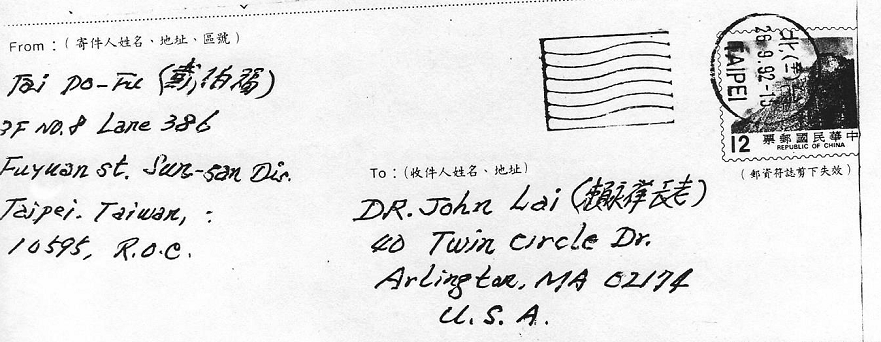 From：(寄件人姓名、地址、區號)
Tai Po-Fu (戴伯福)
3F No.8 Lane 386
Fuyuan st. Sun-san Dis.
Taipei. Taiwan, :
10595, R.O.C.
TAIPEI
26.9.92-15
12
中華民國郵票
REPUBLIC OF CHINA
(郵資符誌剪下失效)
To：(收件人姓名、地址)
DR. John Lai (賴永祥長老)
40 Twin circle Dr.
Arlington, MA 02174
U.S.A.